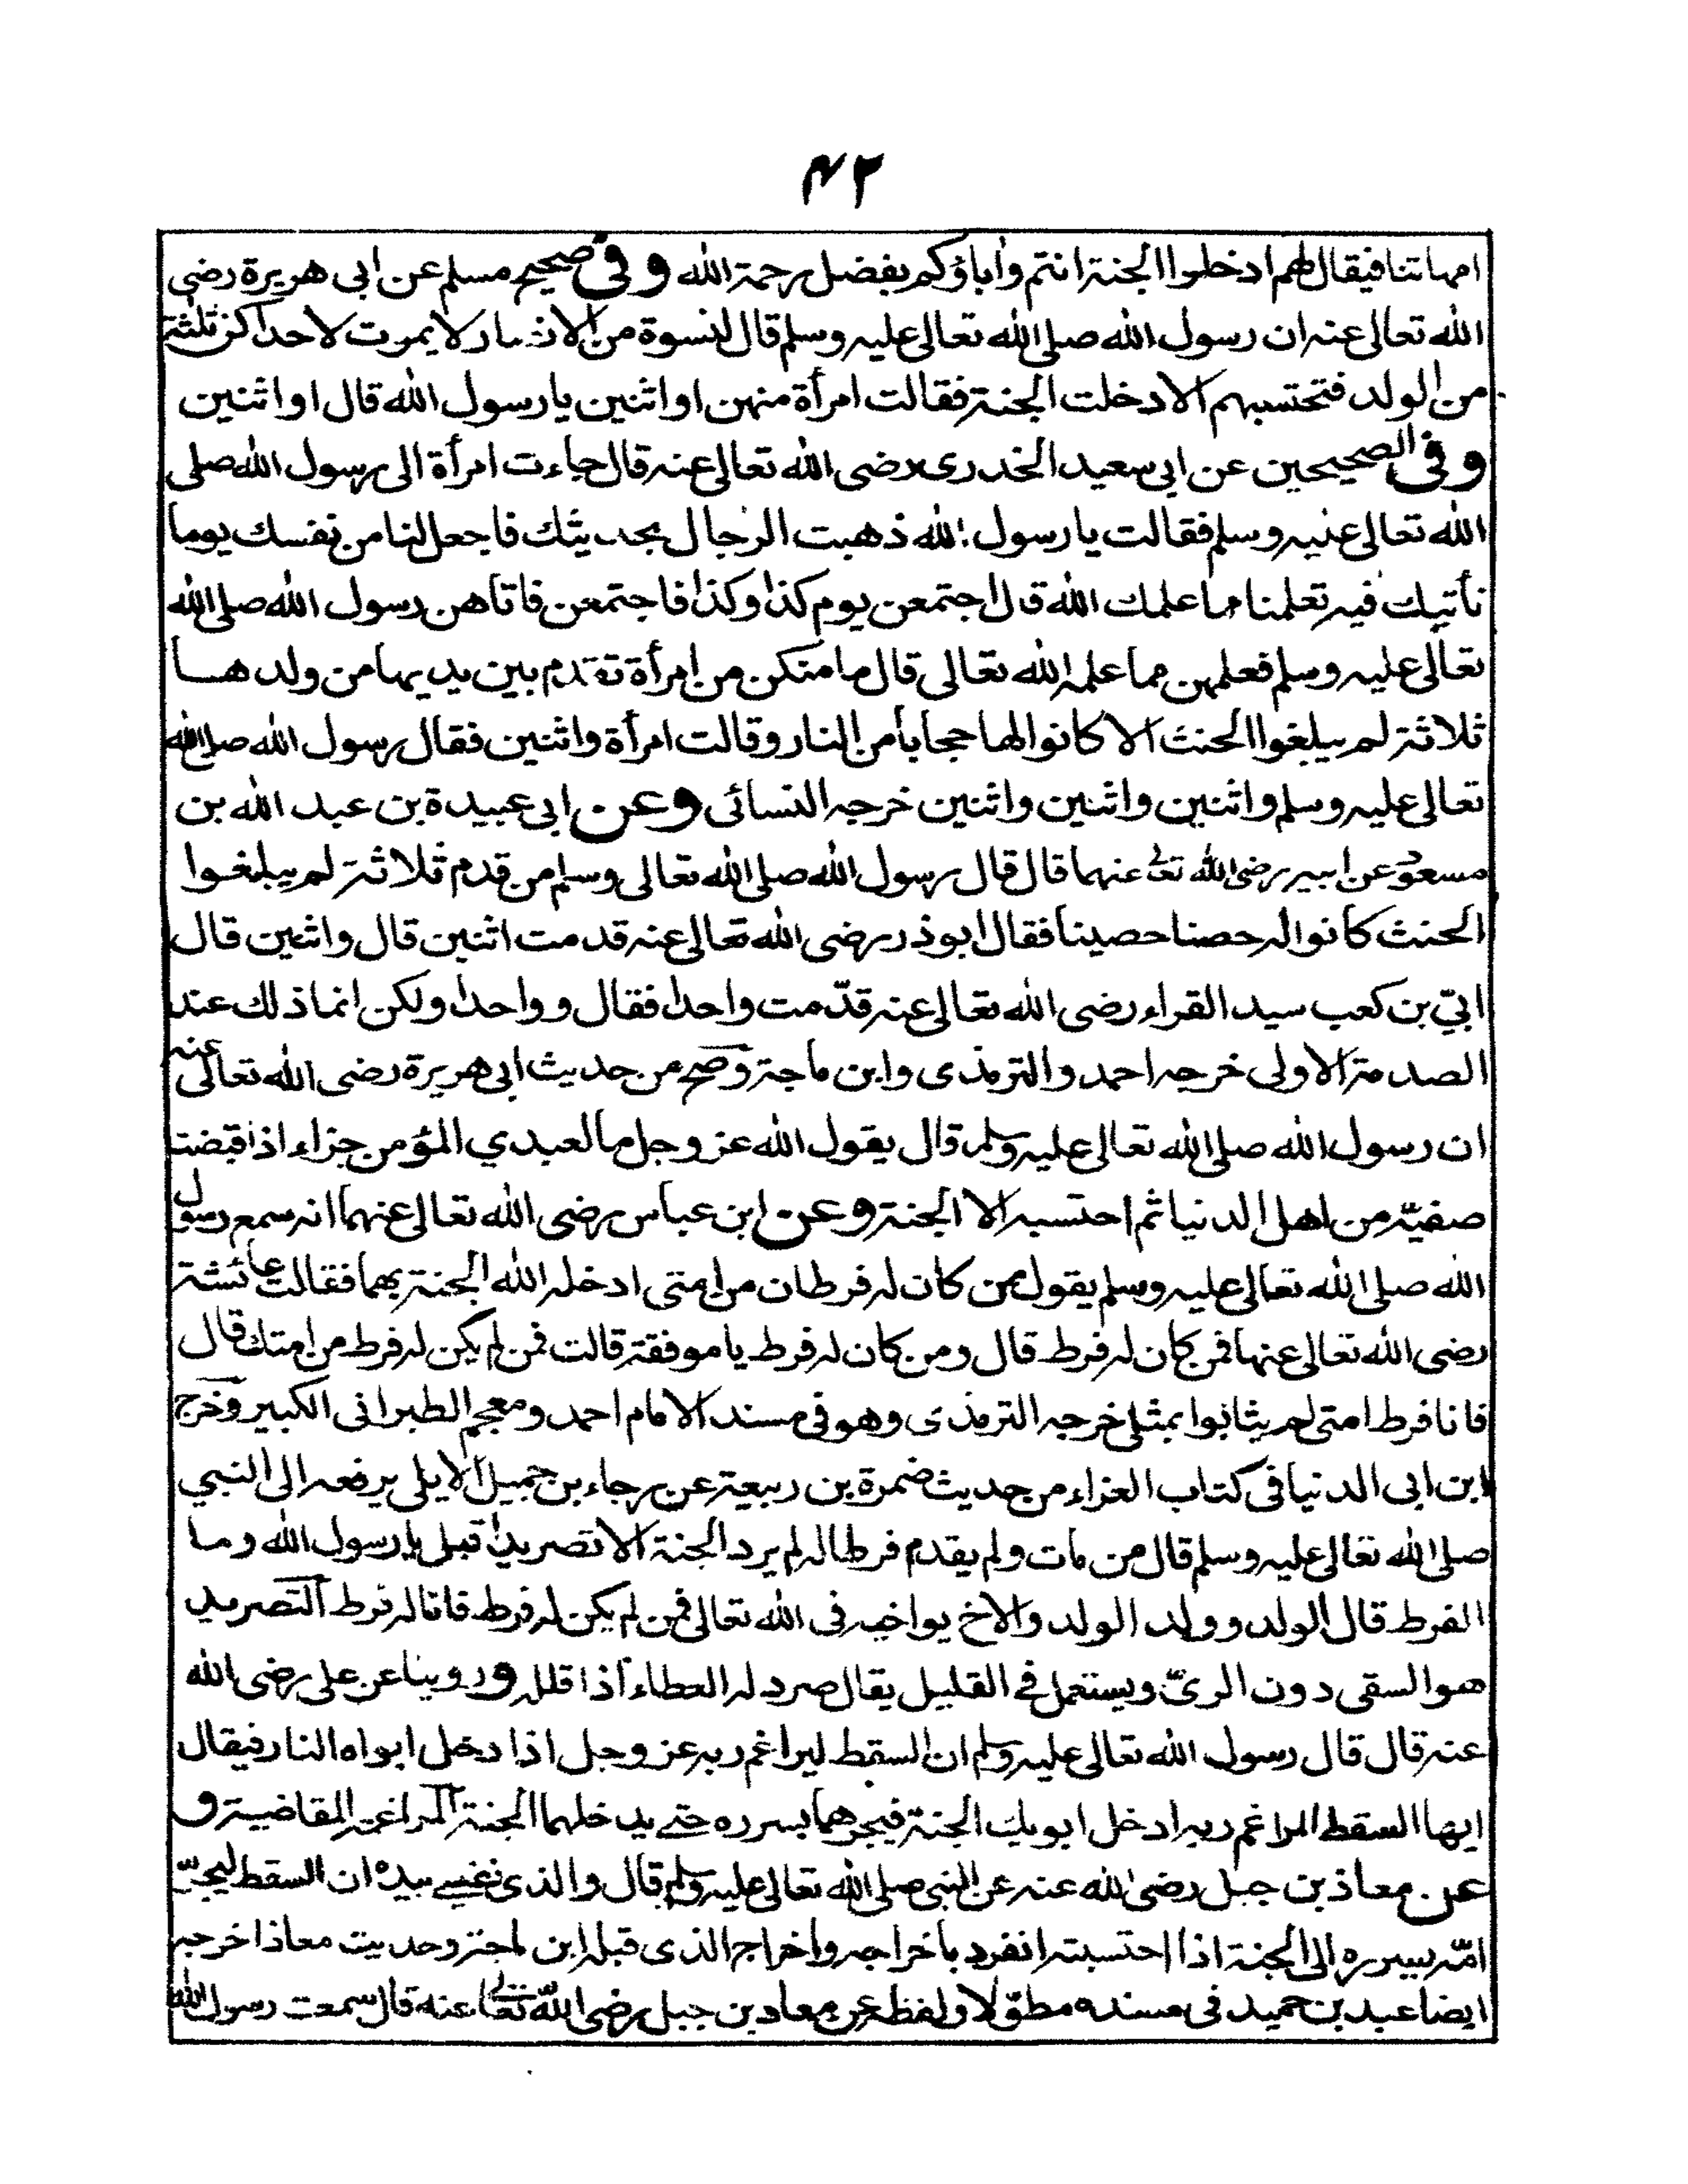 ۴۲
امهاتنا فيقال لهم ادخلوا الجنة انتم وأباؤكم بفضل رحمة الله وفى صحيح مسلم عن ابى هريرة رضى
الله تعالى عنه ان رسول الله صلى الله تعالى عليه وسلم قال لنسوة من الانصار لا يموت لاحداكن ثلثة
من الولد فتحتسبهم الا دخلت الجنة فقالت امرأة منهن او اثنين يا رسول الله قال او اثنين
وفى الصحيحين عن ابى سعيد الخدرى رضى الله تعالى عنه قال جاءت امرأة الى رسول الله صلى
الله تعالى عليه وسلم فقالت يا رسول الله ذهبت الرجال بحديثك فاجعل لنا من نفسك يوما
نأتيك فيه تعلمنا مما علمك الله قال اجتمعن يوم كذا وكذا فاجتمعن فاتاهن رسول الله صلى الله
تعالى عليه وسلم فعلمهن مما علمه الله تعالى قال ما منكن من امرأة تقدم بين يديها من ولدها
ثلاثة لم يبلغوا الحنث الا كانوا لها حجابا من النار وقالت امرأة واثنين فقال رسول الله صلى الله
تعالى عليه وسلم واثنين واثنين واثنين خرجه النسائى وعن ابى عبيدة بن عبد الله بن
مسعود عن ابيه رضى الله تعالى عنهما قال قال رسول الله صلى الله تعالى وسلم من قدم ثلاثة لم يبلغوا
الحنث كانوا له حصنا حصينا فقال ابو ذر رضى الله تعالى عنه قدمت اثنين قال واثنين قال
ابىّ بن كعب سيد القراء رضى الله تعالى عنه قدّمت واحدا فقال وواحدا ولكن انما ذلك عند
الصدمة الاولى خرجه احمد والترمذى وابن ماجة وصح من حديث ابى هريرة رضى الله تعالى عنه
ان رسول الله صلى الله تعالى عليه وسلم قال يقول الله عز وجل ما لعبدي المؤمن جزاء اذا قبضت
صفيّه من اهل الدنيا ثم احتسبه الا الجنة وعن ابن عباس رضى الله تعالى عنهما انه سمع رسول
الله صلى الله تعالى عليه وسلم يقول من كان له فرطان من امتى ادخله الله الجنة بهما فقالت عائشة
رضى الله تعالى عنها فمن كان له فرط قال ومن كان له فرط يا موفقة قالت فمن لم يكن له فرط من امتك قال
فانا فرط امتى لم يثابوا بمثلى خرجه الترمذى وهو فى مسند الامام احمد ومعجم الطبرانى الكبير وخرج
ابن ابى الدنيا فى كتاب العزاء من حديث ضمرة بن ربيعة عن رجاء بن جميل الايلى يرفعه الى النبي
صلى الله تعالى عليه وسلم قال من مات ولم يقدم فرطا له لم يرد الجنة الا تصريدا قيل يا رسول الله وما
الفرط قال الولد وولد الولد والاخ يواخيه فى الله تعالى فمن لم يكن له فرط فانا له فرط التصريد
هو السقى دون الرىّ ويستعمل فى القليل يقال صرد له العطاء اذا قلله وروينا عن على رضى الله
عنه قال قال رسول الله تعالى عليه وسلم ان السقط ليراغم ربه عز وجل اذا دخل ابواه النار فيقال
ايها السقط المراغم ربه ادخل ابويك الجنة فيجرهما بسرره حتى يدخلهما الجنة المراغمة المقاضية و
عن معاذ بن جبل رضى الله عنه عن النبى صلى الله تعالى عليه وسلم قال والذى نفسى بيده ان السقط ليجرّ
امّه بسرره الى الجنة اذا احتسبته انفرد باخراجه واخراج الذى قبله ابن ماجة وحديث معاذ اخرجه
ايضا عبد بن حميد فى مسنده مطوّلا ولفظه عن معاذ بن جبل رضى الله تعالى عنه قال سمعت رسول الله